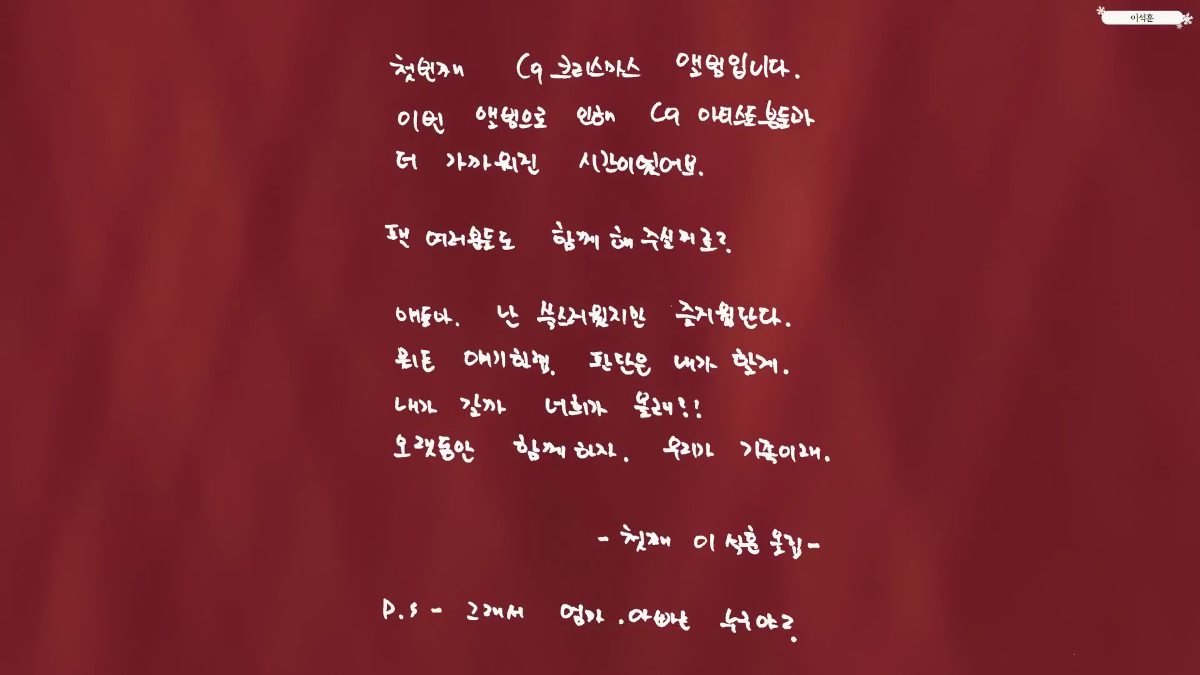 이석훈
첫번째 C9 크리스마스 앨범입니다.
이번 앨범으로 인해 C9 아티스트분들과
더 가까워진 시간이었어요.
팬 여러분들도 함께 해 주실꺼죠?
얘들아. 난 쑥스러웠지만 즐거웠단다.
뭐든 얘기한 판단은 내가 할게.
내가 갈까 너희가 올래!!
오랫동안 함께하자. 우리가 가족이래.
-첫째 이석훈 올림-
P.S - 그래서 엄마.아빠는 누구야?